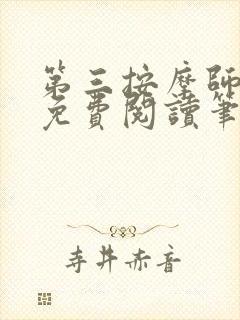 第三按摩師
免費閱讀筆
寺井赤音